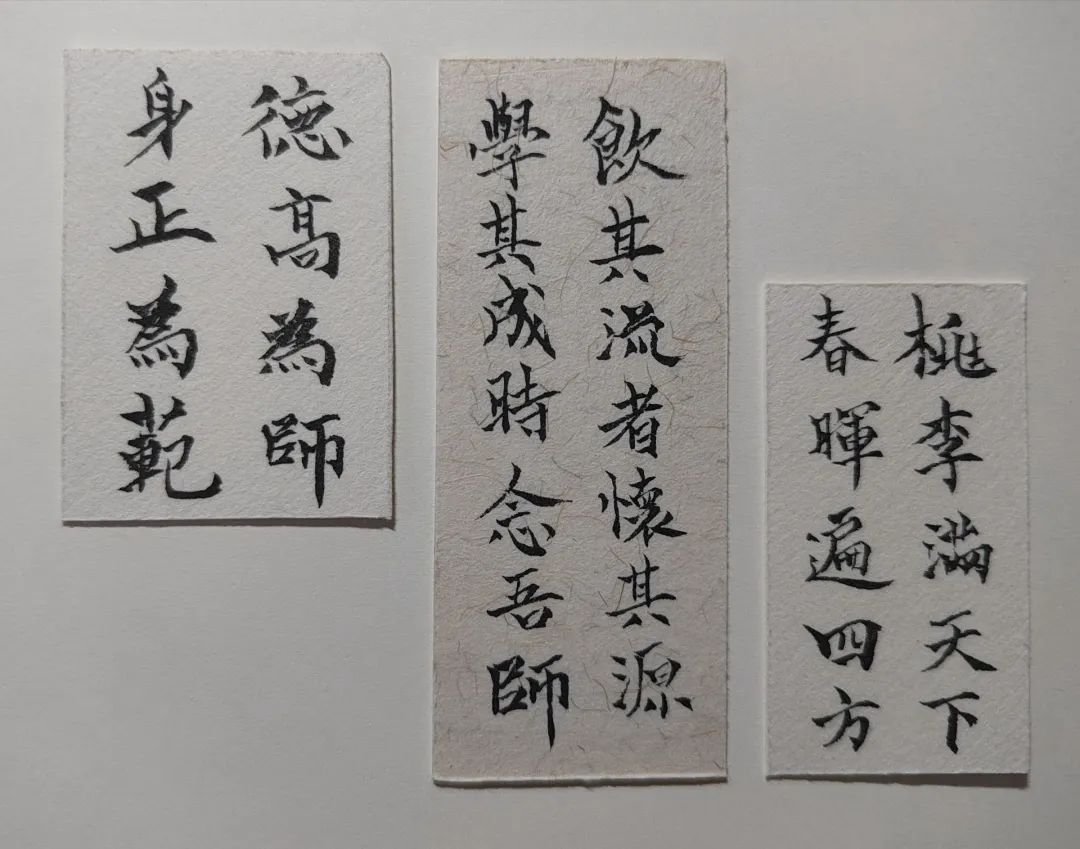 德高為師
身正為範
飲其流者懷其源
學其成時念吾師
桃李滿天下
春暉遍四方